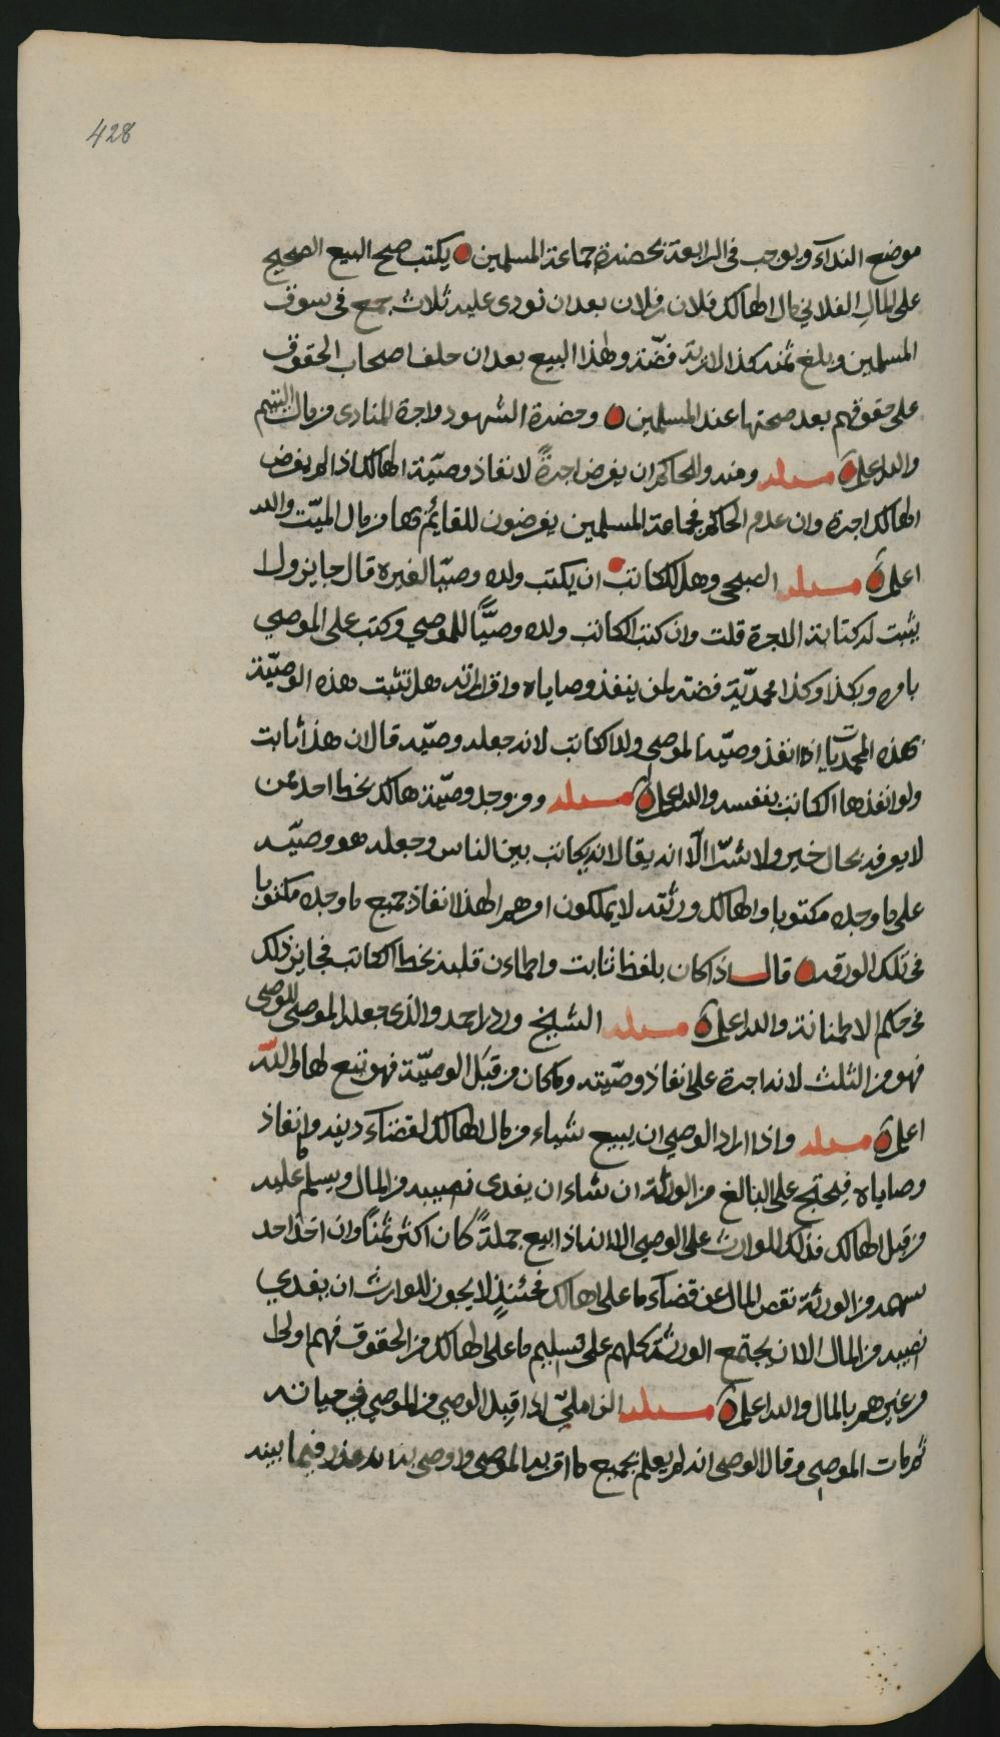 428
موضع النداء ويوجب في الرابعة بحضرة جماعة المسلمين يكتب صح البيع الصحيح
على المال الفلاني مال الهالك فلان بن فلان بعد ان نودي عليه ثلاث جمع في سوق
المسلمين وبلغ ثمنه كذا لارية فضة وهذا البيع بعد ان حلف اصحاب الحقوق
على حقوقهم بعد صحتها عند المسلمين وحضرة الشهود واجرة المنادي من مال اليتيم
والله اعلم مسئلة ومنه وللحاكم ان يفرض اجرةً لانفاذ وصيّة الهالك اذا لم يفرض
الهالك اجرة وان عدم الحاكم فجماعة المسلمين يفرضون للقائم بها من مال الميّت والله
اعلم مسئلة الصبحي وهل للكاتب ان يكتب ولده وصيّا لغيره قال جايز ولا
يثبت له كتابة الاجرة قلت وان كتب الكاتب ولده وصيًّا للموصي وكتب على الموصي
بامره وبكذا وكذا محمديّة فضة لمن ينفذ وصاياه واقراراته هل تثبت هذه الوصيّة
بهذه المحمديات اذا انفذ وصيّة الموصي ولد الكاتب لانه جعله وصيّه قال ان هذا ثابت
ولو انفذها الكاتب بنفسه والله اعلم مسئلة ومن وجد وصيّة هالك بخط احد ممن
لا يعرفه بحال خير ولا شرّ الّا انه يقال انه يكاتب بين الناس وجعله هو وصيّه
على ما وجده مكتوبا والهالك ورثته لا يملكون امرهم الهذا انفاذ جميع ما وجده مكتوبا
في تلك الورقة قال اذا كان بلفظ ثابت واطمأن قلبه بخط الكاتب فجايز ذلك
في حكم الاطمنانة والله اعلم مسئلة الشيخ وارد احمد والذي جعله الموصي للوصي
فهو من الثلث لانه اجرة على انفاذ وصيّته وما كان من قبَل الوصيّة فهو تبع لها والله
اعلم مسئلة واذا اراد الوصي ان يبيع شياء من مال الهالك لقضاء دينه وانفاذ
وصاياه فيحتج على البالغ من الورثة ان شاء ان يفدى نصيبه من المال ويسلم ما عليه
من قبل الهالك فذلك للوارث على الوصي الا انه اذا بيع جملةً كان اكثر ثمنًا وان اخذ احد
سهمه من الورثة نقص المال عن قضاء ما على الهالك فحينئذٍ لا يجوز للوارث ان يفدي
نصيبه من المال الا ان يجتمع الورثة كلهم على تسليم ما على الهالك من الحقوق فهم اولى
من غيرهم بالمال والله اعلم مسئلة الزاملي اذا قبل الوصي من الموصي في حياته
ثم مات الموصي وقال الوصي انه لم يعلم بجميع ما اقر به الموصي واوصى به فيما بينه